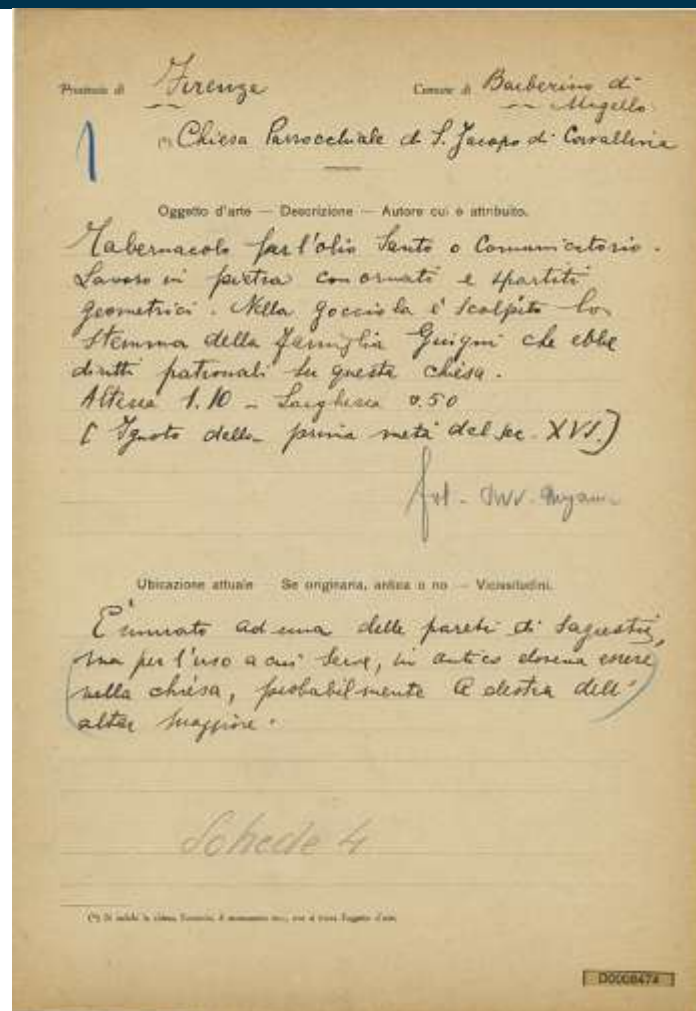 Provincia di Firenze Comune di Barberino di
Mugello
1
(*) Chiesa Parrocchiale di S. Jacopo di Cavallina
Oggetto d'arte — Descrizione — Autore cui è attribuito.
Tabernacolo per l'olio Santo o Comunicatorio.
Lavoro in pietra con ornati e spartiti
geometrici. Nella gocciola è scolpito lo
stemma della famiglia Giugni che ebbe
diritti patronali su questa chiesa.
Altezza 1.10 - Larghezza 0.50
(Ignoto della prima metà del sec. XVI.)
Ubicazione attuale — Se originaria, antica o no — Vicissitudini.
È murato ad una delle pareti di Sagrestia,
ma per l'uso a cui serve, in antico doveva essere
nella chiesa, probabilmente a destra dell'
altar maggiore.
Schede 4
(*) Si indichi la chiesa, l'oratorio, il monumento ecc., ove si trova l'oggetto d'arte.
D0008474